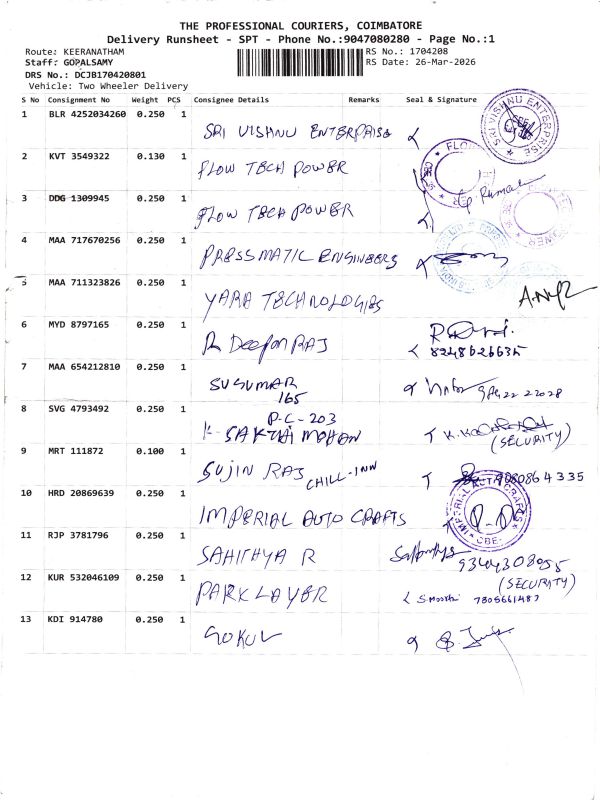 THE PROFESSIONAL COURIERS, COIMBATORE
Delivery Runsheet - SPT - Phone No.:9047080280 - Page No.:1
Route: KEERANATHAM
RS No.: 1704208
Staff: GOPALSAMY
RS Date: 26-Mar-2026
DRS No.: DCJB170420801
Vehicle: Two Wheeler Delivery
S No Consignment No Weight PCS Consignee Details Remarks Seal & Signature
1 BLR 4252034260 0.250 1 SRI VISHNU ENTERPRISE SRI VISHNU ENTERPRISE
2 KVT 3549322 0.130 1 FLOW TECH POWER
3 DDG 1309945 0.250 1 FLOW TECH POWER
4 MAA 717670256 0.250 1 PRESSMATIC ENGINEERS
5 MAA 711323826 0.250 1 YARA TECHNOLOGIES
6 MYD 8797165 0.250 1 R Deepan RAJ
8248626635
7 MAA 654212810 0.250 1 SUSUMAR
165
8 SVG 4793492 0.250 1 P-C-203
K-SAKTHI MOHAN
(SECURITY)
9 MRT 111872 0.100 1 SUJIN RAJ CHILL-INN
10 HRD 20869639 0.250 1 IMPERIAL AUTO CRAFTS IMPERIAL AUTO CRAFTS CBE
11 RJP 3781796 0.250 1 SAHITHYA R
12 KUR 532046109 0.250 1 PARK LAYER (SECURITY)
13 KDI 914780 0.250 1 GOKUL